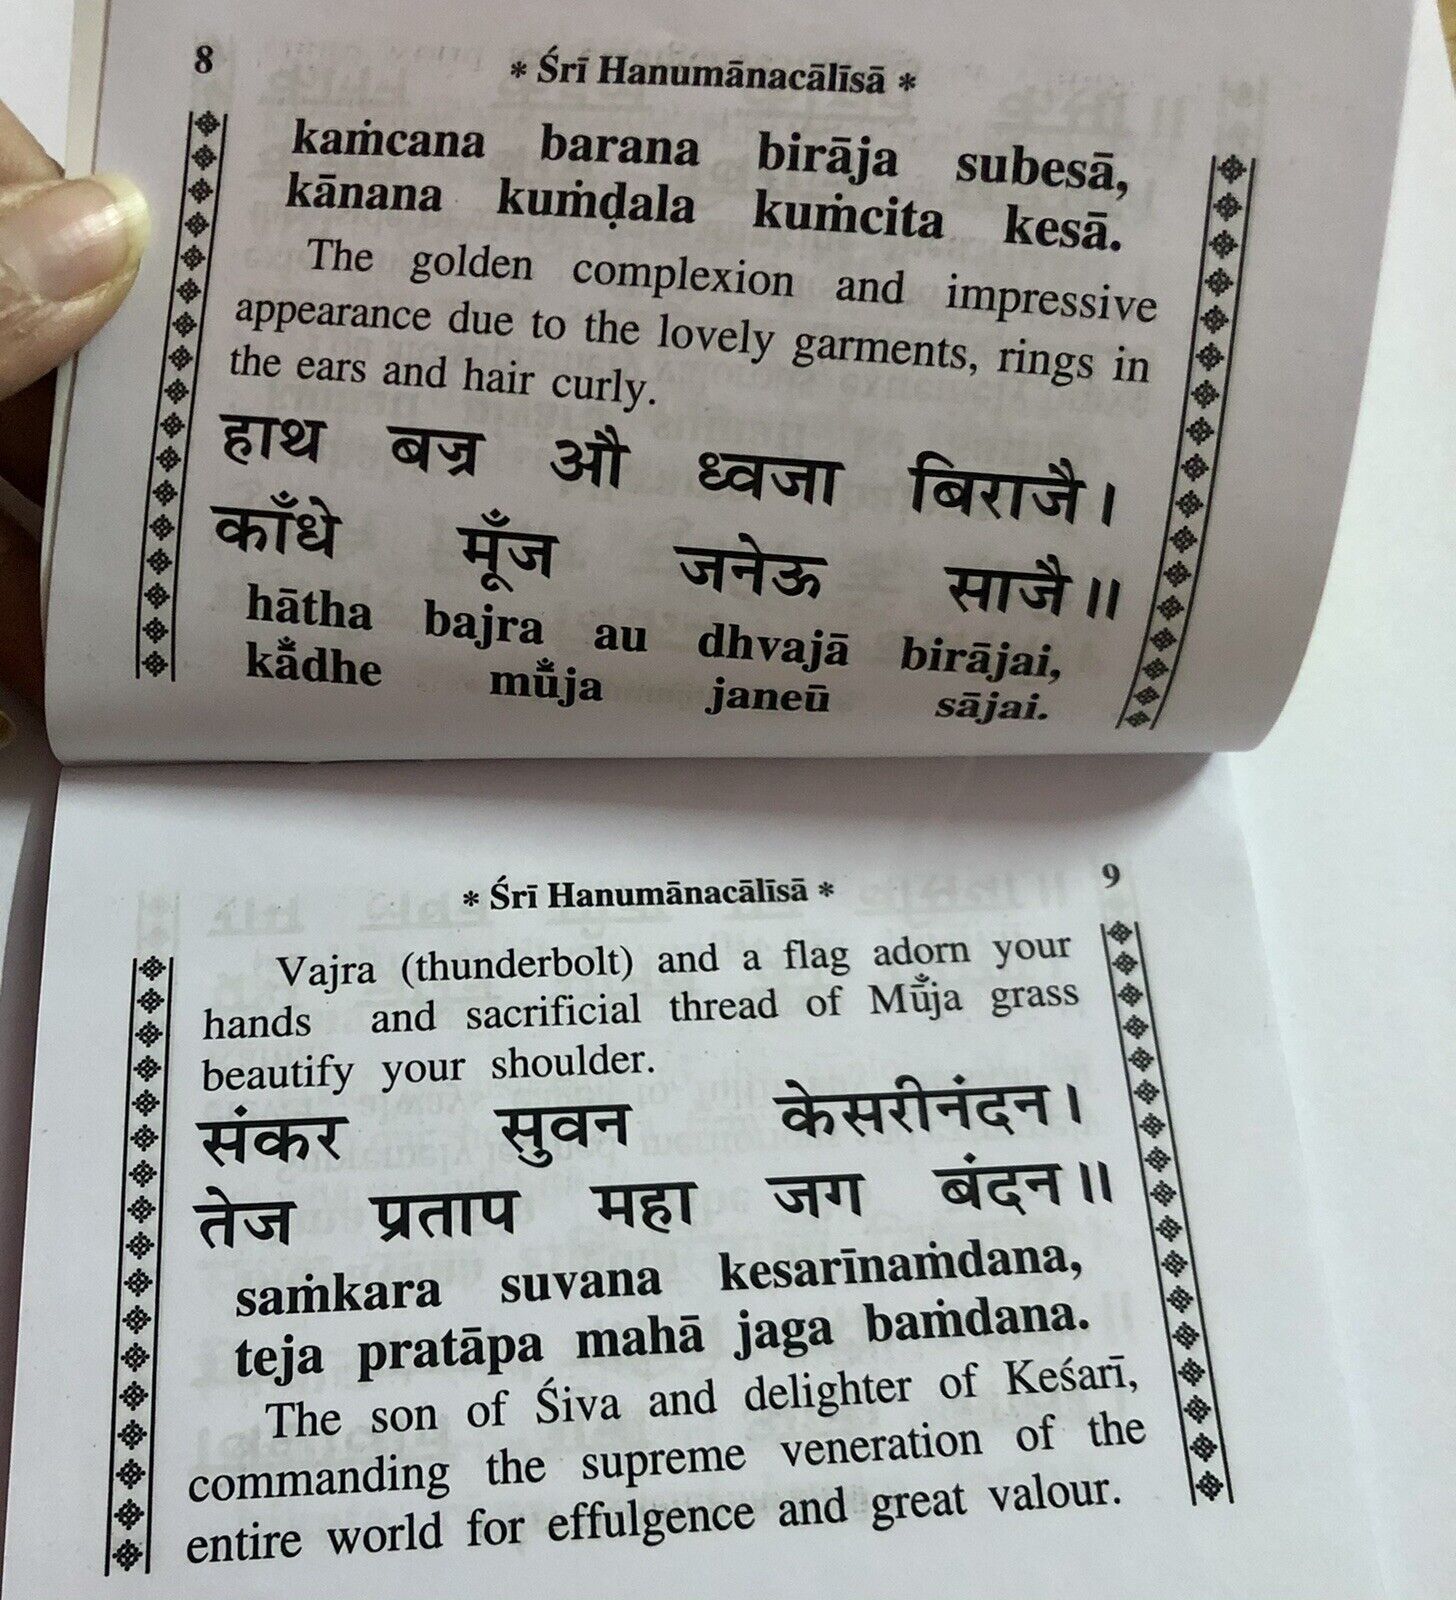 8
* Śrī Hanumānacālīsā *
kaṁcana barana birāja subesā,
kānana kuṁḍala kuṁcita kesā.
The golden complexion and impressive
appearance due to the lovely garments, rings in
the ears and hair curly.
हाथ बज्र औ ध्वजा बिराजै।
काँधे मूँज जनेऊ साजै॥
hātha bajra au dhvajā birājai,
kā̐dhe mū̐ja janeū sājai.
* Śrī Hanumānacālīsā * 9
Vajra (thunderbolt) and a flag adorn your
hands and sacrificial thread of Mū̐ja grass
beautify your shoulder.
संकर सुवन केसरीनंदन।
तेज प्रताप महा जग बंदन॥
saṁkara suvana kesarīnaṁdana,
teja pratāpa mahā jaga baṁdana.
The son of Śiva and delighter of Keśarī,
commanding the supreme veneration of the
entire world for effulgence and great valour.